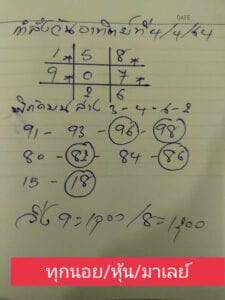 DATE:
กำลังวันอาทิตย์ที่ 4/4/64
1* 5 8*
9* 0 7*
2 6
บน ล่าง 3-4-6-2
91 - 93 - 96 - 98
80 - 82 - 84 - 86
15 - 18
วิ่ง 9=1,900 / 8=1,800
ทุกนอย/หุ้น/มาเลย์